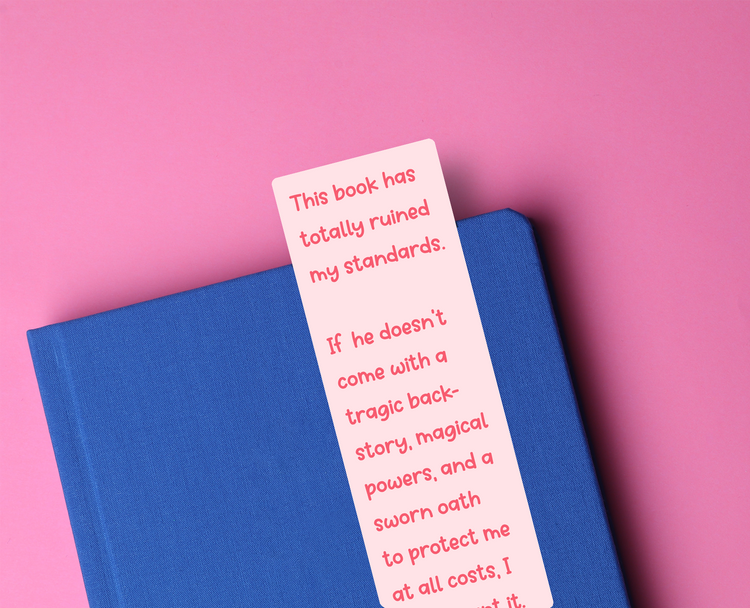 This book has
totally ruined
my standards.
If he doesn't
come with a
tragic back-
story, magical
powers, and a
sworn oath
to protect me
at all costs, I
it.